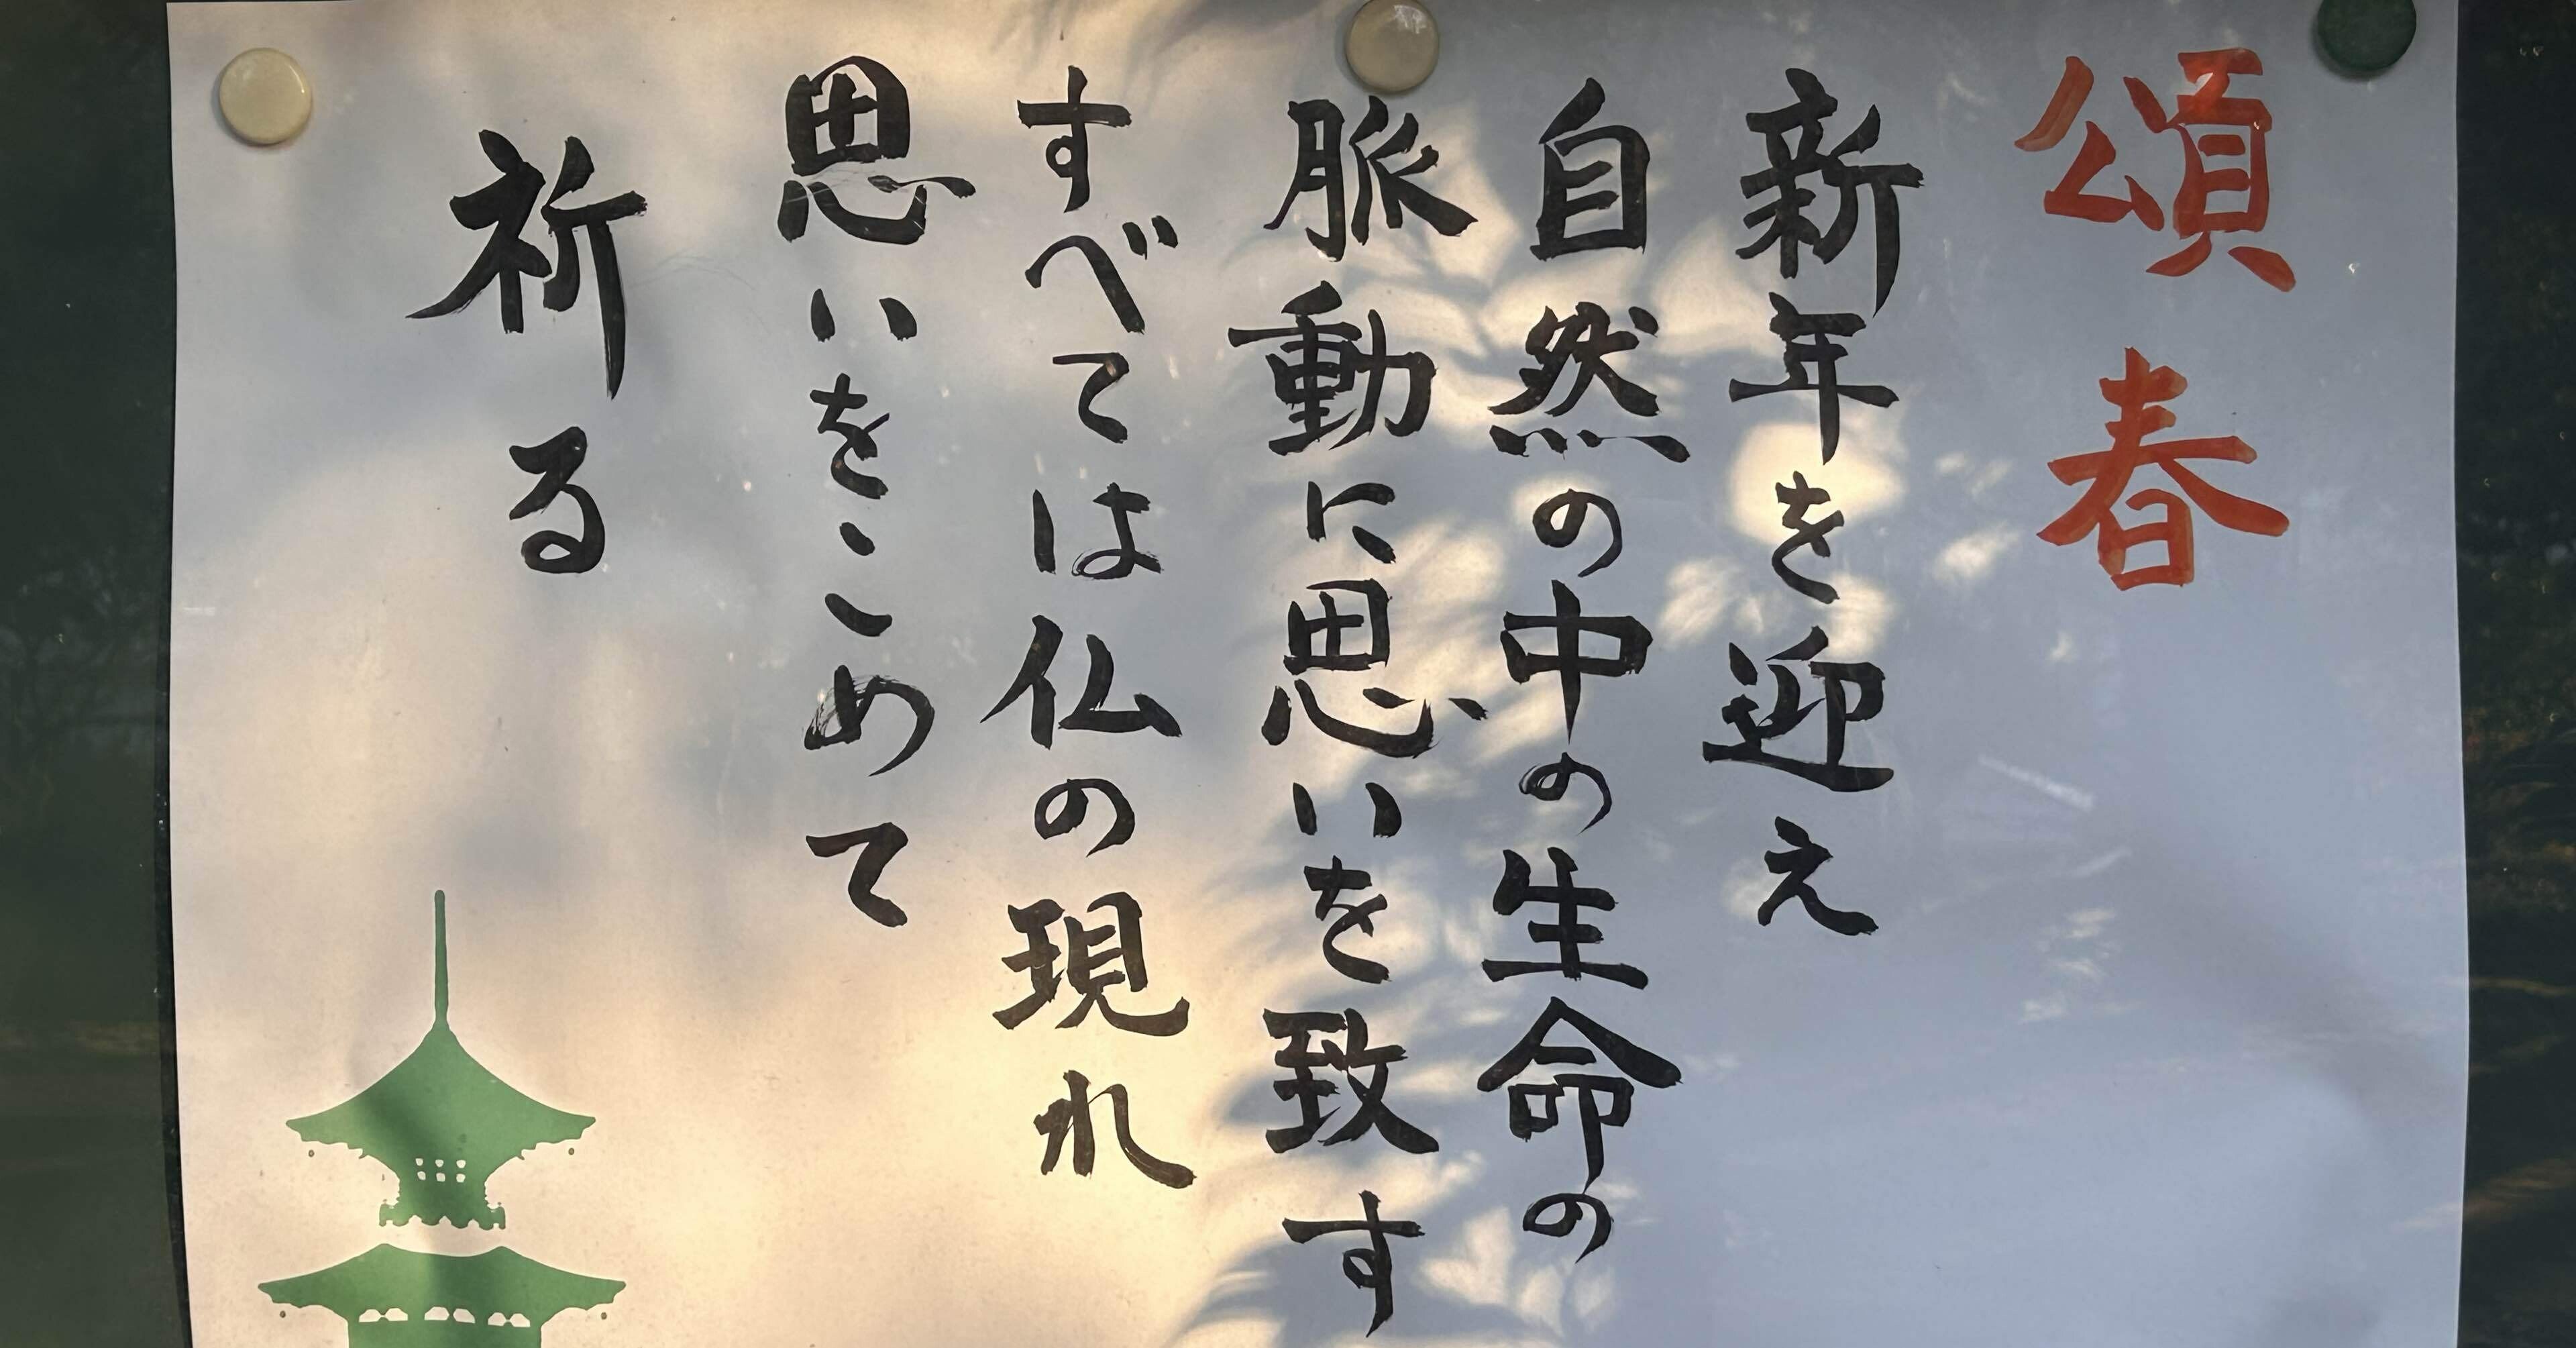 頌春
新年を迎え
自然の中の生命の
脈動に思いを致す
すべては仏の現れ
思いをこめて
祈る